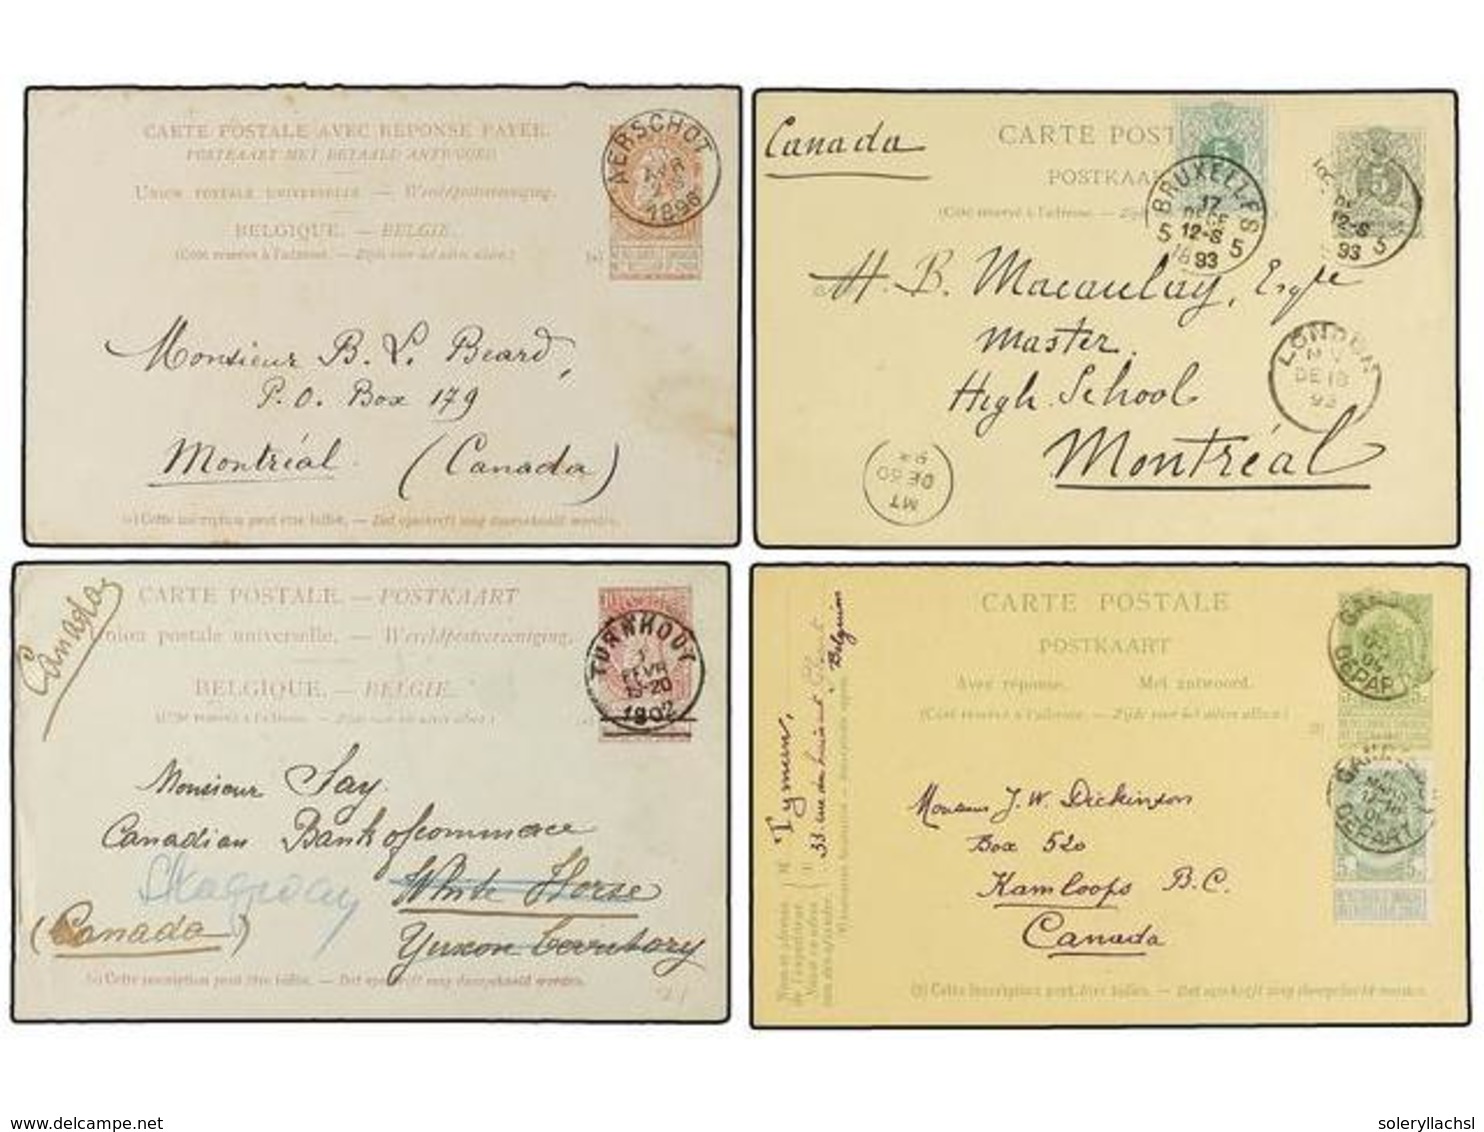 CARTE POSTALE AVEC RÉPONSE PAYÉE.
POSTKAART MET BETAALD ANTWOORD
UNION POSTALE UNIVERSELLE. — Wereldpostvereeniging.
BELGIQUE. — BELGIË.
(Côté réservé à l'adresse. — Zijde voor het adres alleen.)
AERSCHOT
1896
Monsieur B. L. Beard,
P.O. Box 179
Montréal (Canada)
(a) Cette inscription peut être biffée. — Dit opschrift mag doorgehaald worden.
Canada
CARTE POST
POSTKAA
(Côté réservé à l'adresse. — Zijd
5
BRUXELLES
17
DECE
12-S
5 5
1893
5
12-S
93 5
H. B. Macaulay, Esqre
Master
High School
Montréal
LONDON
DE 18
93
MT
DE 30
Canada
CARTE POSTALE. — POSTKAART
Union postale universelle. — Wereldpostvereeniging.
BELGIQUE. — BELGIË.
(Côté réservé à l'adresse. — Zijde voor het adres alleen.)
TURNHOUT
1
FEVR
19-20
1902
Monsieur Jay
Canadian Bank of commerce
White Horse
Skagway
(Canada)
Yukon Territory
(a) Cette inscription peut être biffée. — Dit opschrift mag doorgehaald worden.
CARTE POSTALE
POSTKAART
Avec réponse. Met antwoord.
(Côté réservé à l'adresse. — Zijde voor het adres alleen.)
DEPART
DEPART
5 5
Tymen,
33 rue du
Belgium
Monsieur J. W. Dickinson
Box 520
Kamloops B.C.
Canada
(b) Cette inscription peut être biffée. — Dit opschrift mag doorgehaald worden.
www.delcampe.net
soleryllachsl